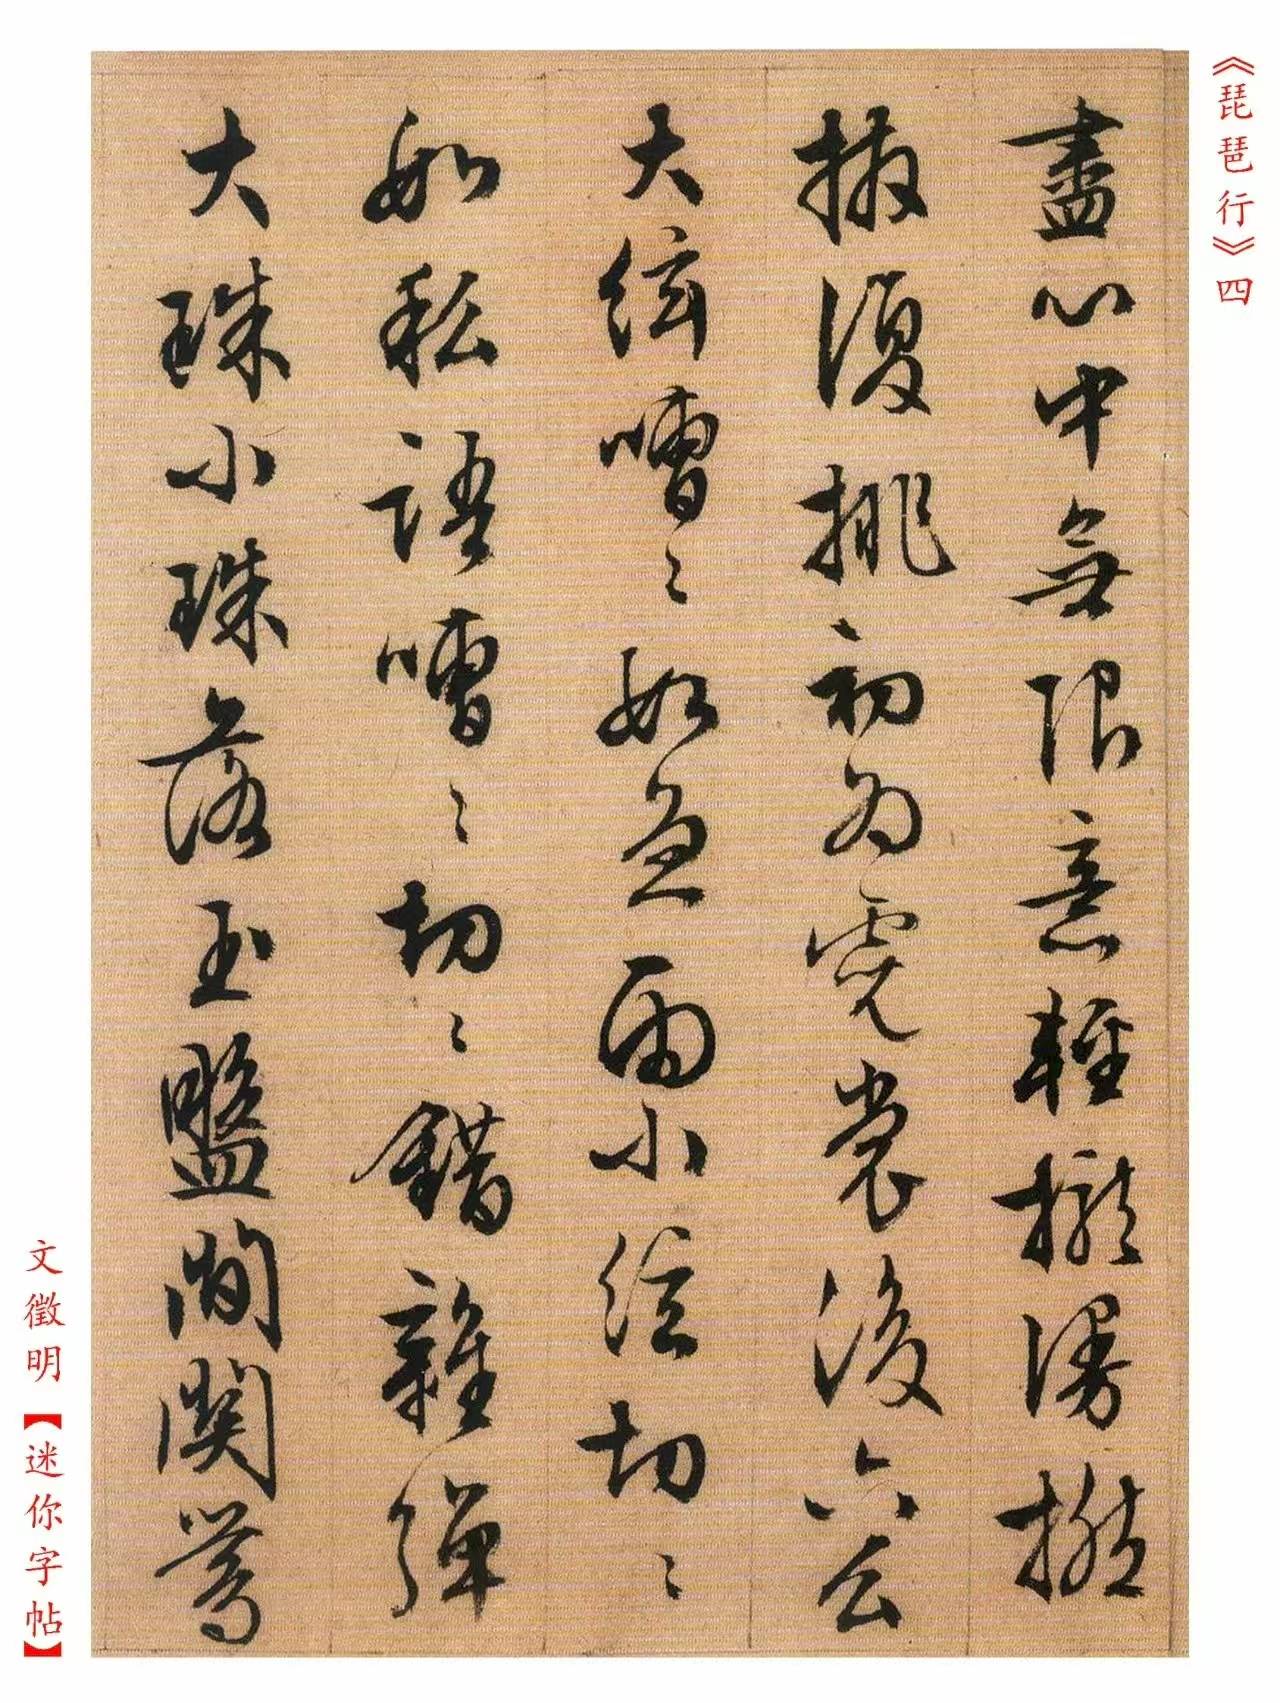 《琵琶行》四
盡心中無限意輕攏慢撚
撥復挑初為霓裳後六么
大絃嘈〻如急雨小絃切〻
如私語嘈〻切〻錯雜彈
大珠小珠落玉盤間關鶯
文徵明【迷你字帖】